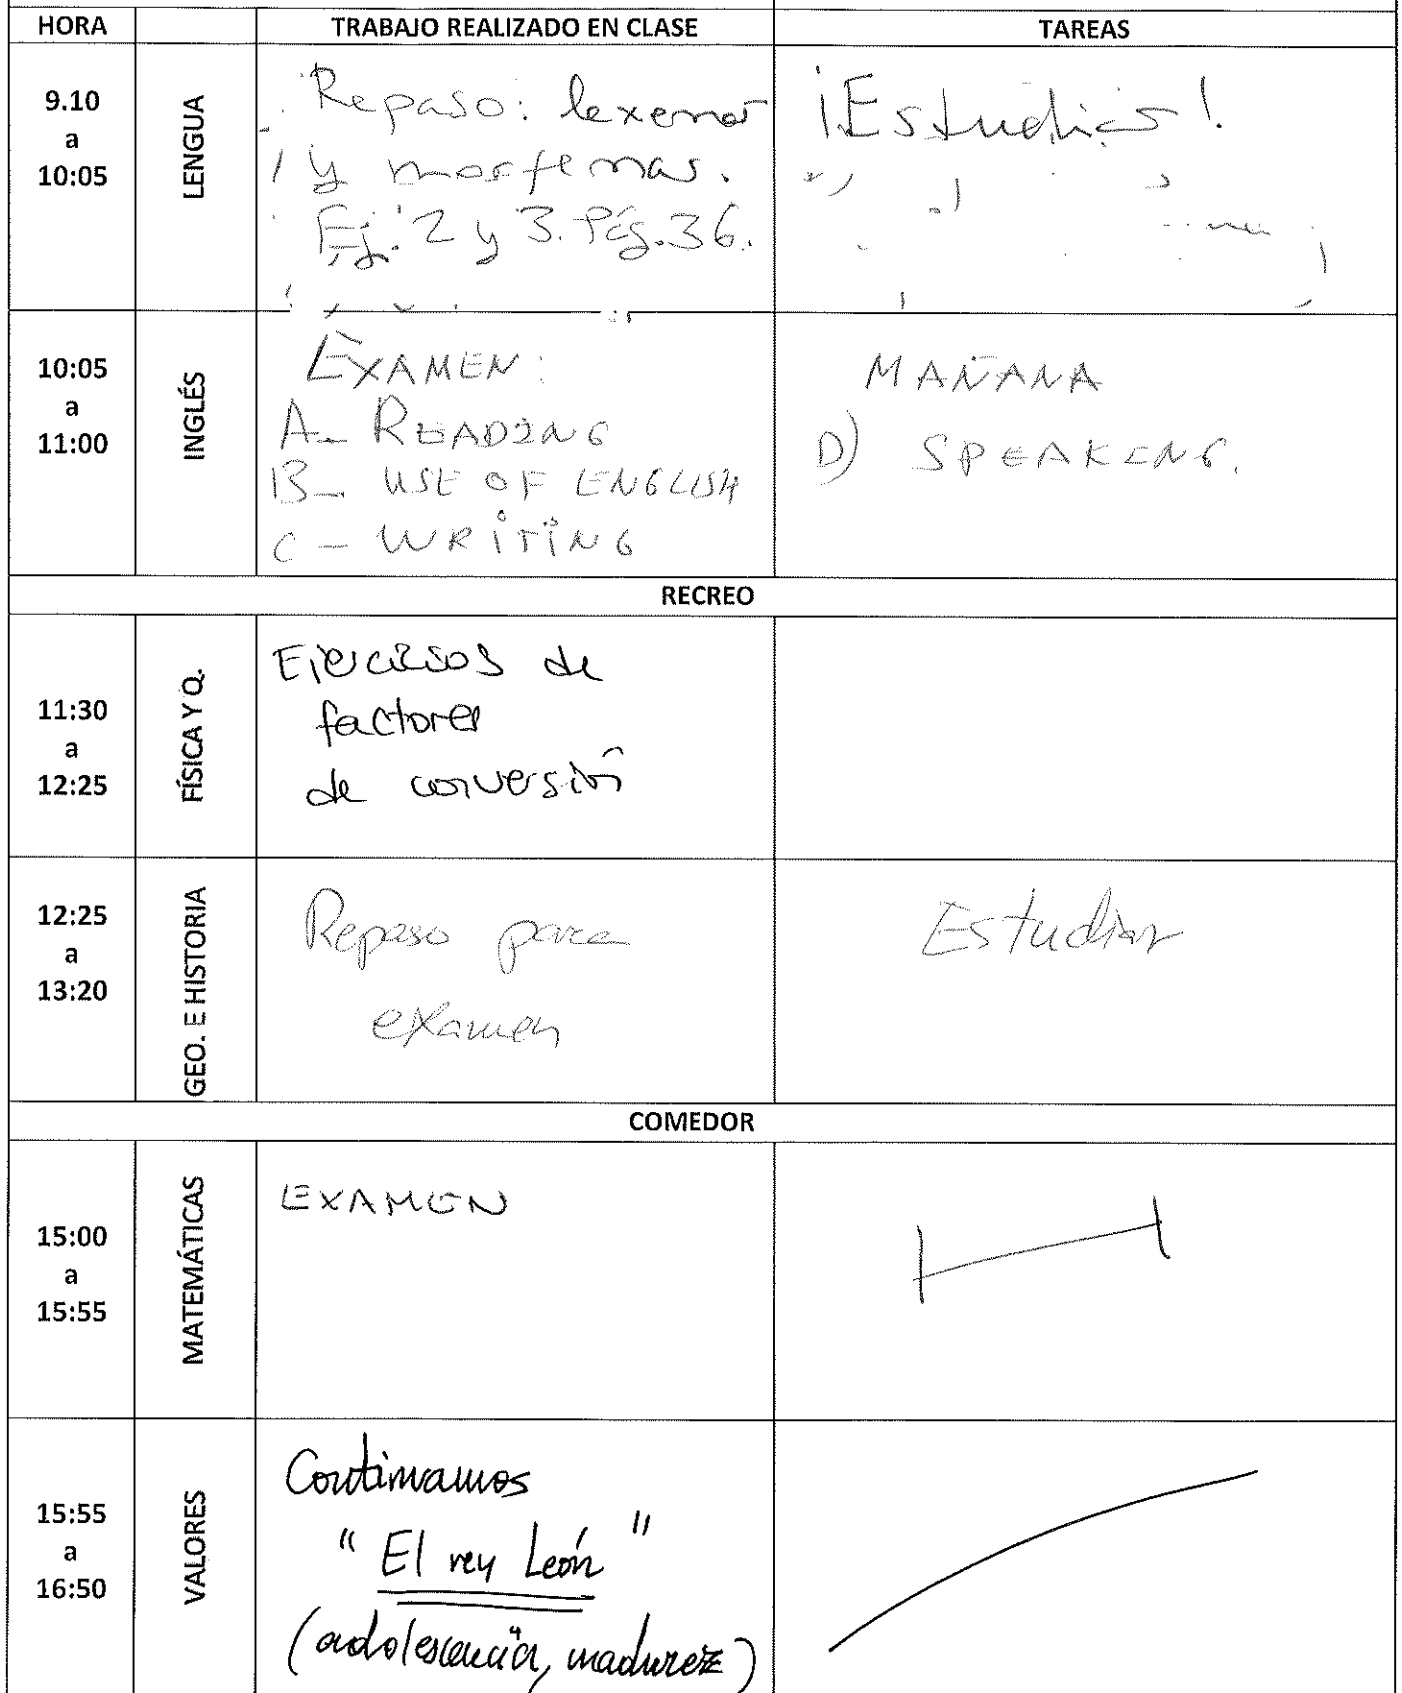 HORA TRABAJO REALIZADO EN CLASE TAREAS
9.10
a
10:05
LENGUA
Repaso: lexemas
y morfemas.
Ej. 2 y 3. Pág. 36.
¡Estudiar!
10:05
a
11:00
INGLÉS
EXAMEN:
A- READING
B- USE OF ENGLISH
C- WRITING
MAÑANA
D) SPEAKING.
RECREO
11:30
a
12:25
FÍSICA Y Q.
Ejercicios de
factores
de conversión
12:25
a
13:20
GEO. E HISTORIA
Repaso para
examen
Estudiar
COMEDOR
15:00
a
15:55
MATEMÁTICAS
EXAMEN
15:55
a
16:50
VALORES
Continuamos
"El rey León"
(adolescencia, madurez)